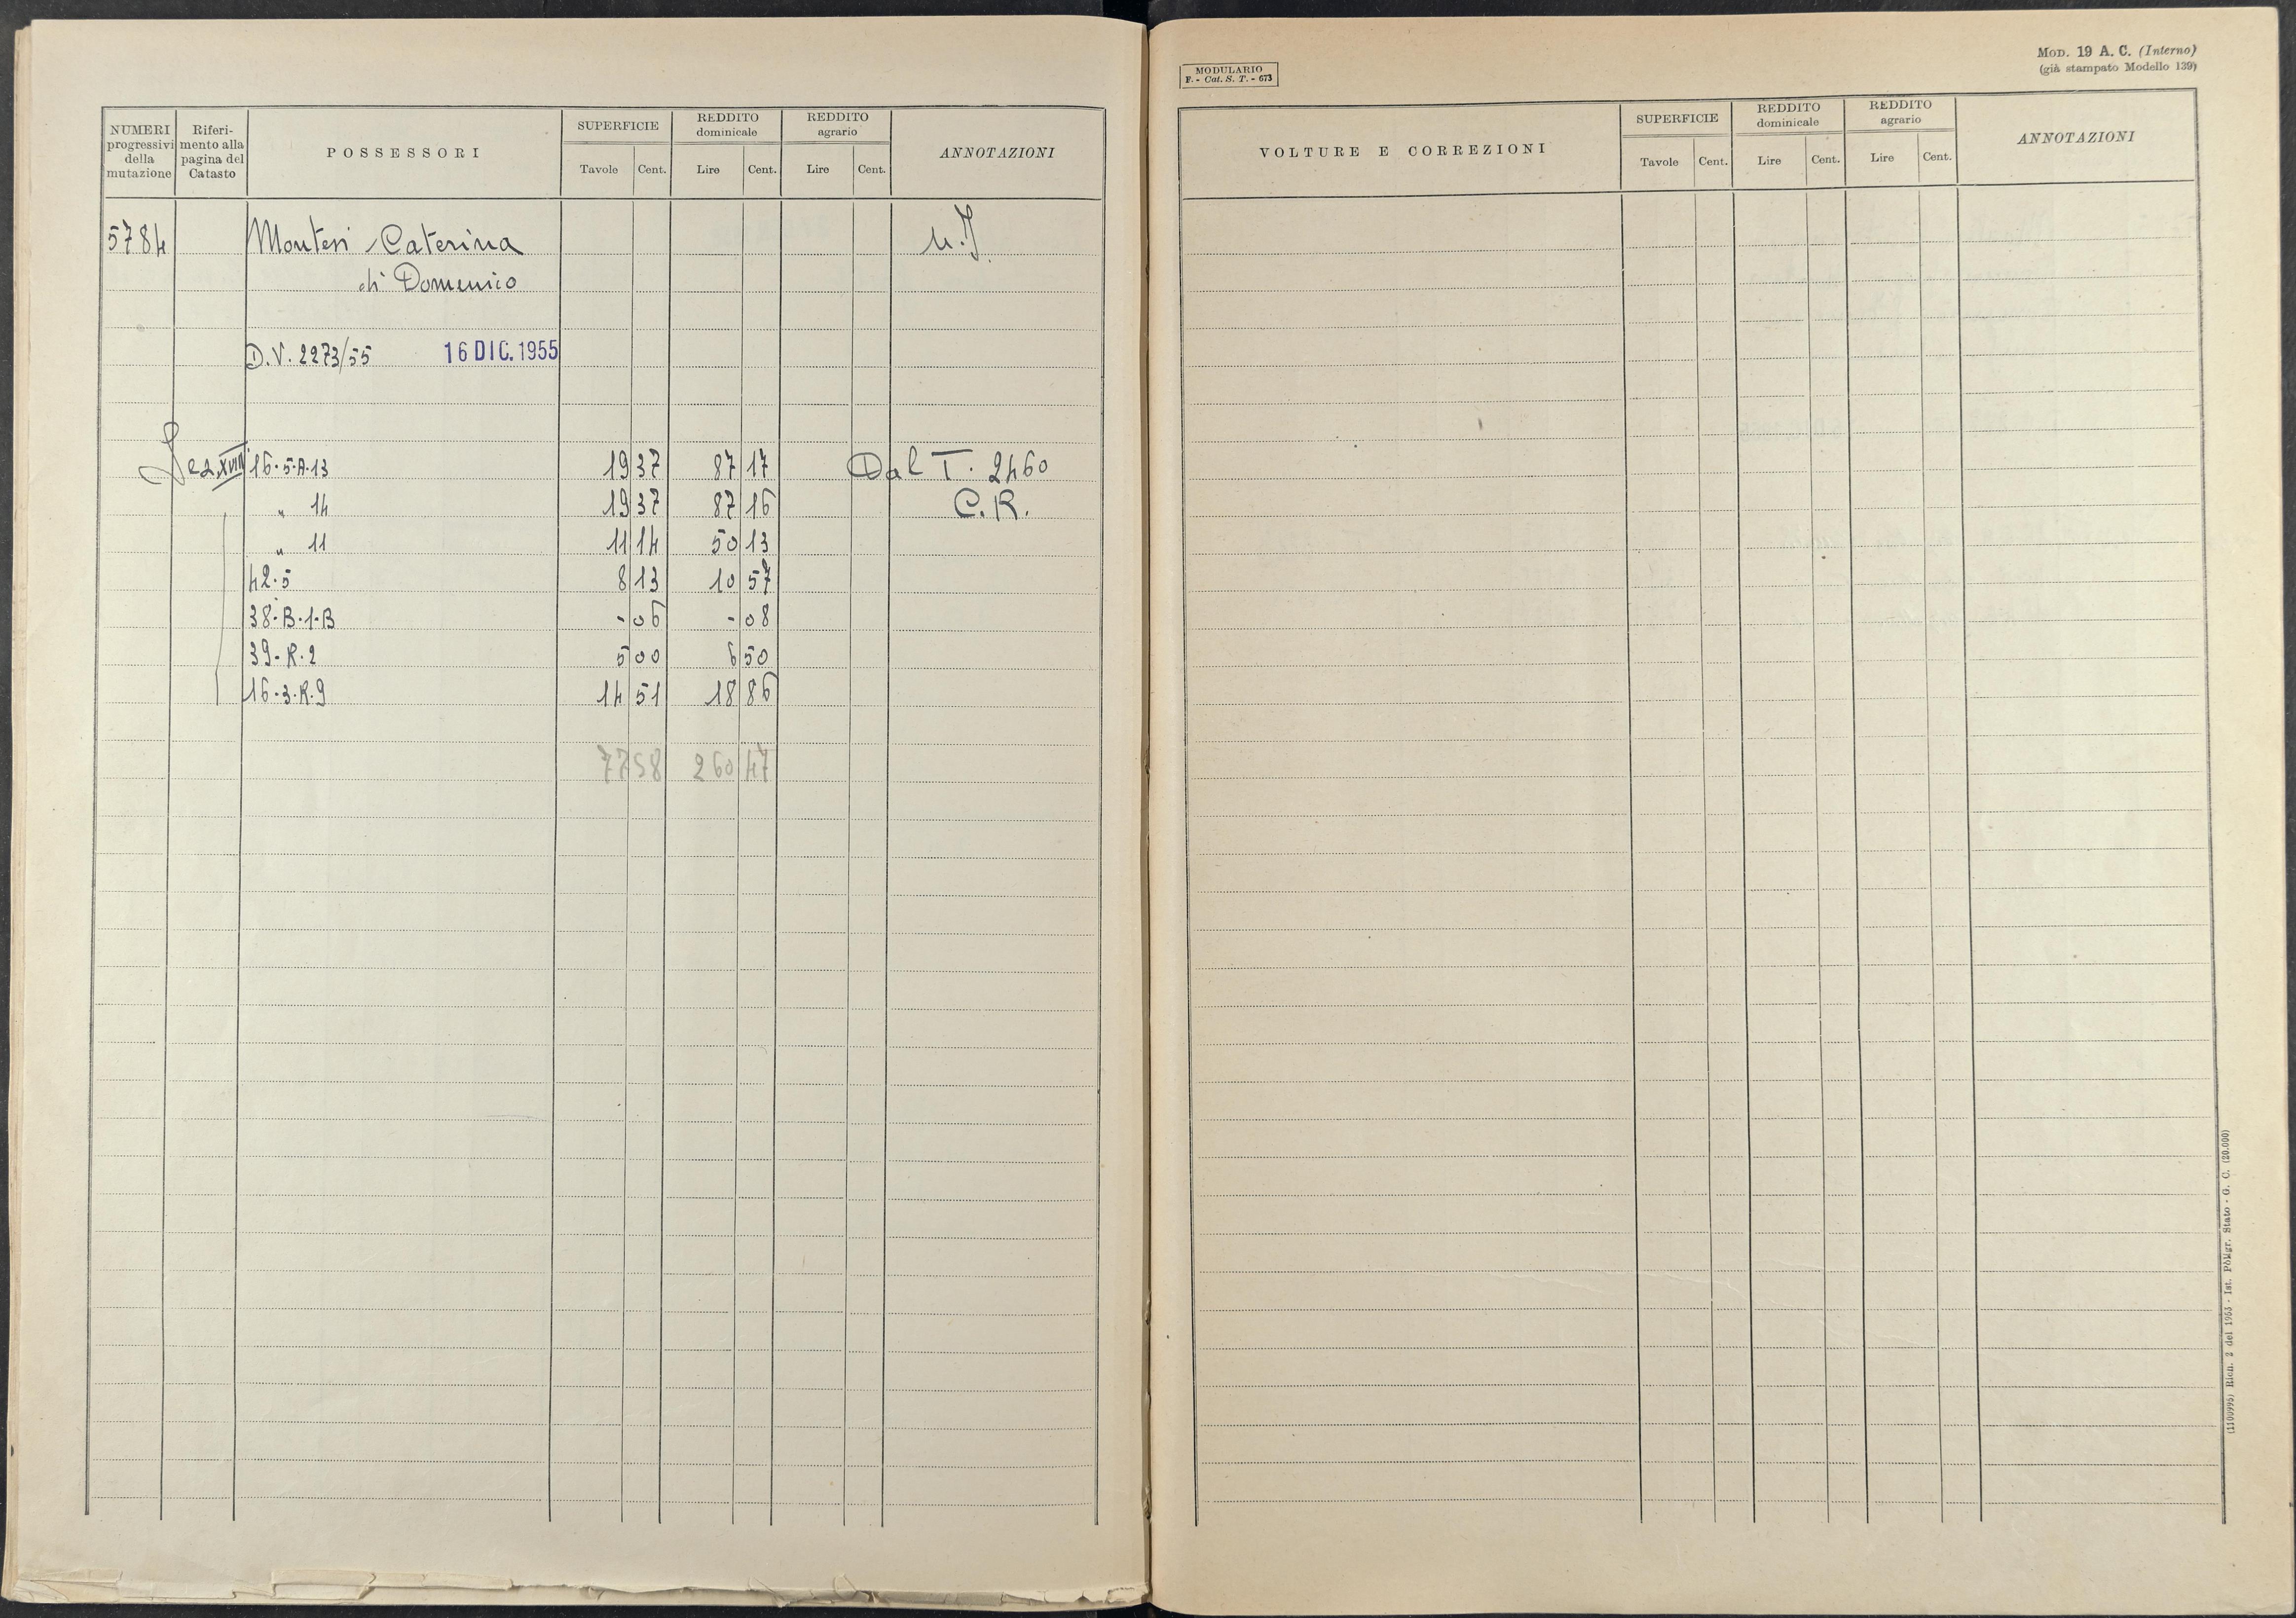 NUMERI progressivi della mutazione
Riferimento alla pagina del Catasto
POSSESSORI
SUPERFICIE
Tavole Cent.
REDDITO dominicale
Lire Cent.
REDDITO agrario
Lire Cent.
ANNOTAZIONI
5784 Montesi Caterina u.I.
di Domenico
D.V. 2273/55 16 DIC. 1955
Sez XVIII 16.5.A.13 19 37 87 17 Dal T. 2460
" 14 19 37 87 16 C.R.
" 11 11 14 50 13
42.5 8 13 10 57
38.B.1.B - 06 - 08
39.R.2 5 00 6 50
16.3.R.9 14 51 18 86
77 58 260 47
MODULARIO
F. - Cat. S. T. - 673
MOD. 19 A. C. (Interno)
(già stampato Modello 139)
VOLTURE E CORREZIONI
SUPERFICIE
Tavole Cent.
REDDITO dominicale
Lire Cent.
REDDITO agrario
Lire Cent.
ANNOTAZIONI
(1100995) Rich. 2 del 1953 - Ist. Poligr. Stato - G. C. (20.000)